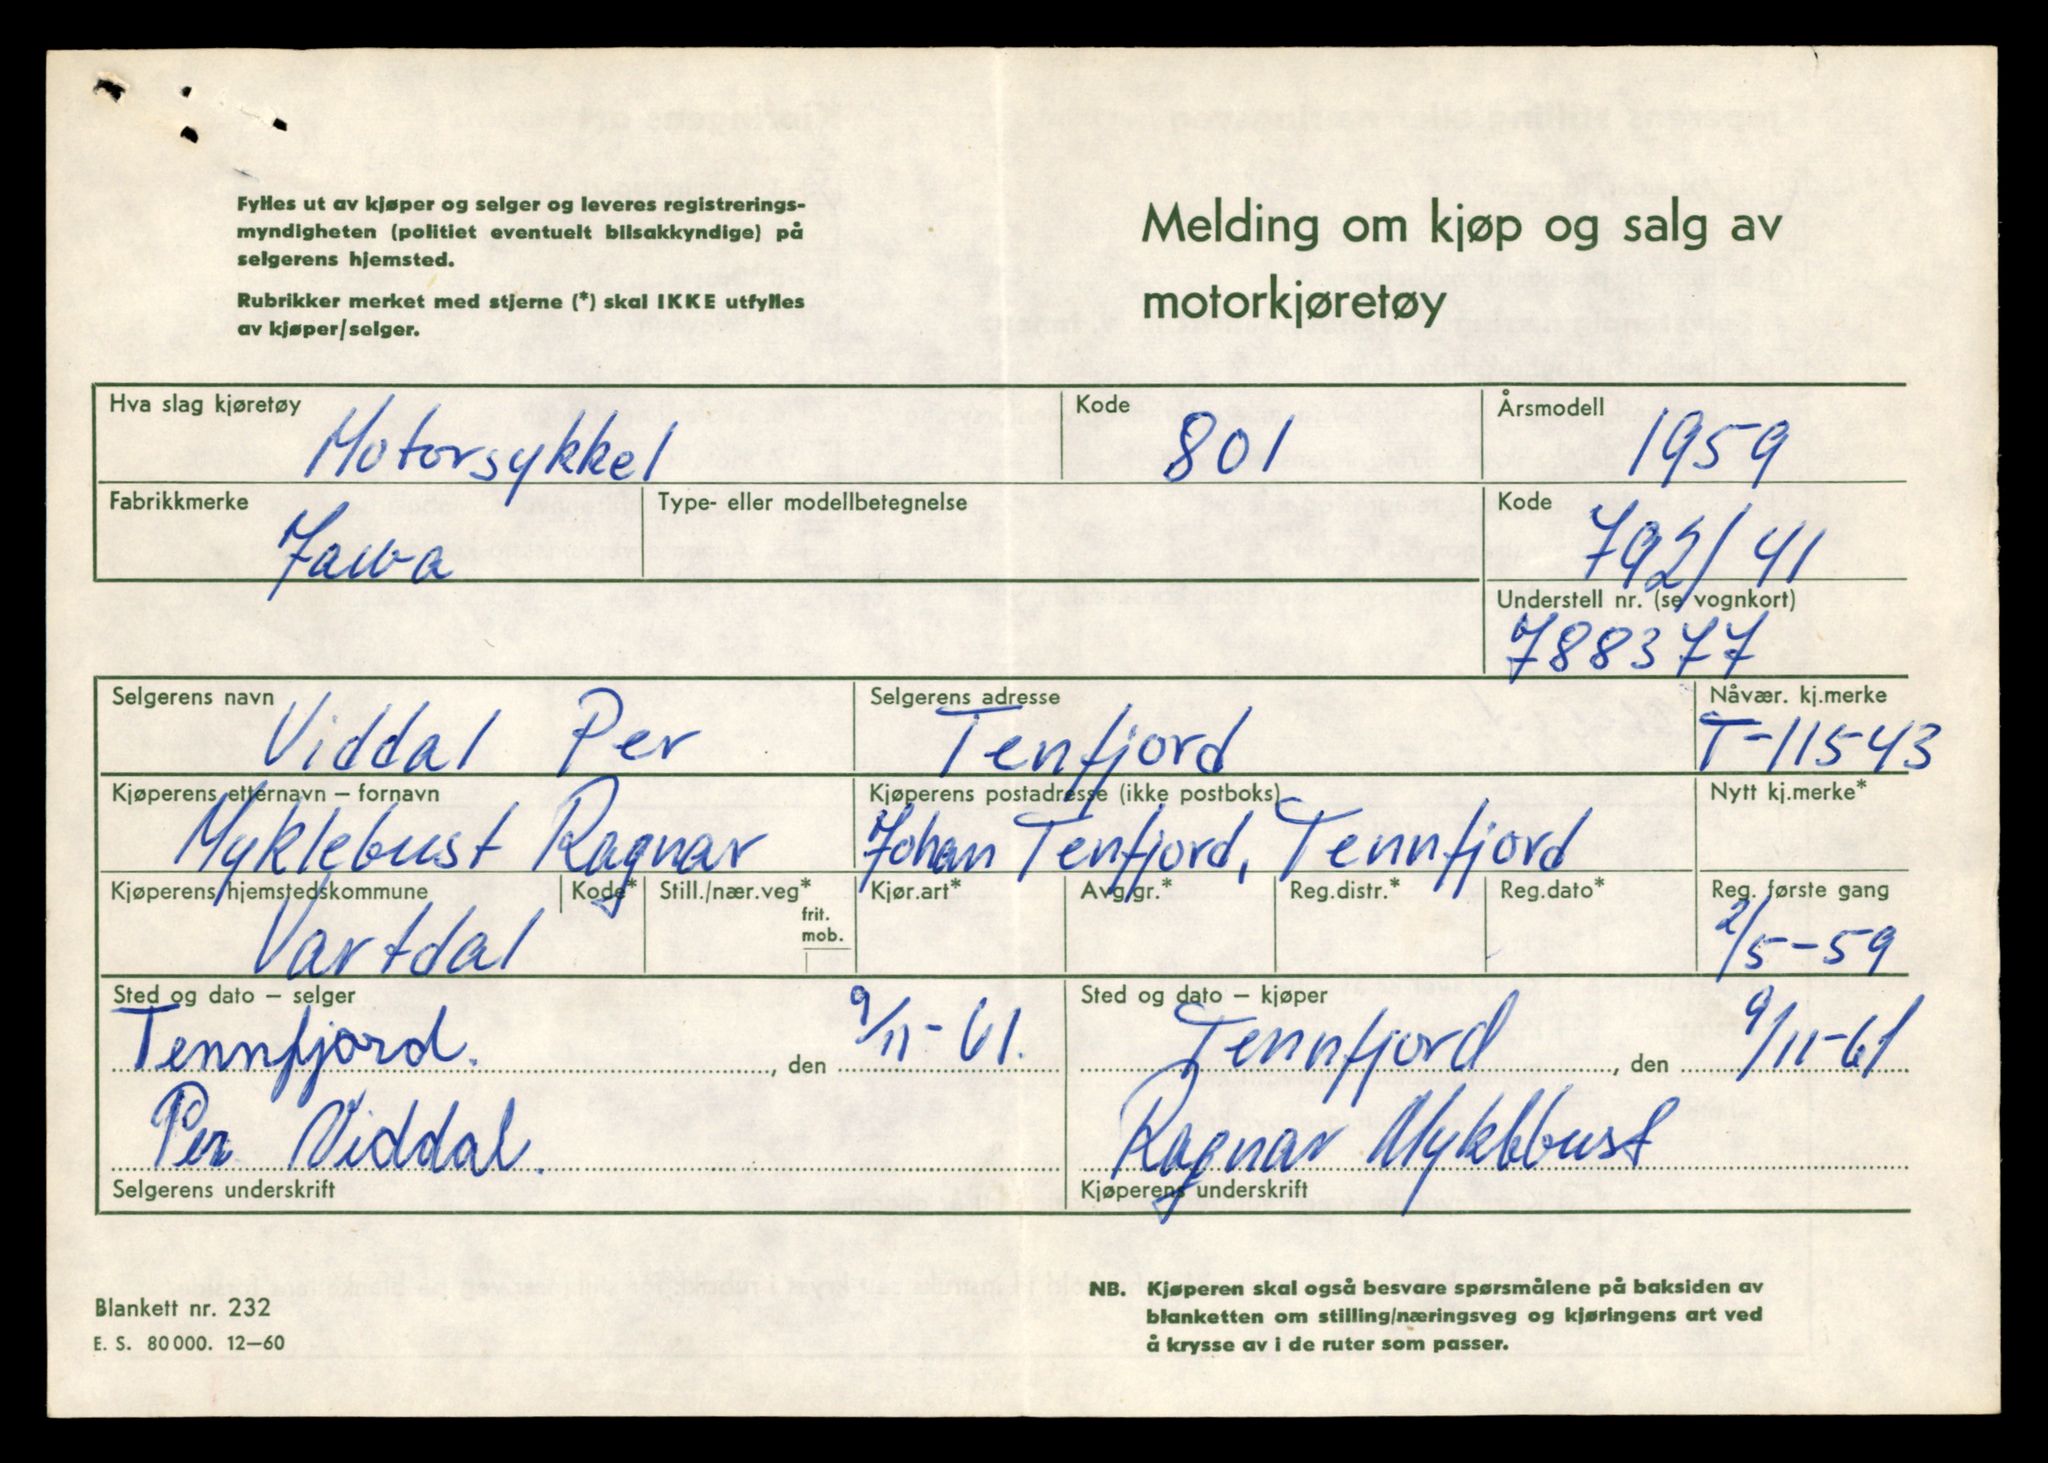 Fylles ut av kjøper og selger og leveres registrerings-
myndigheten (politiet eventuelt bilsakkyndige) på
selgerens hjemsted.
Rubrikker merket med stjerne (*) skal IKKE utfylles
av kjøper/selger.
Melding om kjøp og salg av
motorkjøretøy
Hva slag kjøretøy Kode Årsmodell
Motorsykkel 801 1959
Fabrikkmerke Type- eller modellbetegnelse Kode
Jawa 792/41
Understell nr. (se vognkort)
788377
Selgerens navn Selgerens adresse Nåvær. kj.merke
Viddal Per Tenfjord T-11543
Kjøperens etternavn – fornavn Kjøperens postadresse (ikke postboks) Nytt kj.merke*
Myklebust Ragnar Johan Tenfjord, Tennfjord
Kjøperens hjemstedskommune Kode* Still./nær.veg* Kjør.art* Avg.gr.* Reg.distr.* Reg.dato* Reg. første gang
frit.
mob.
Vartdal 2/5-59
Sted og dato – selger Sted og dato – kjøper
Tennfjord. , den 9/11-61. Tennfjord , den 9/11-61
Per Viddal. Ragnar Myklebust
Selgerens underskrift Kjøperens underskrift
Blankett nr. 232
E. S. 80 000. 12–60
NB. Kjøperen skal også besvare spørsmålene på baksiden av
blanketten om stilling/næringsveg og kjøringens art ved
å krysse av i de ruter som passer.